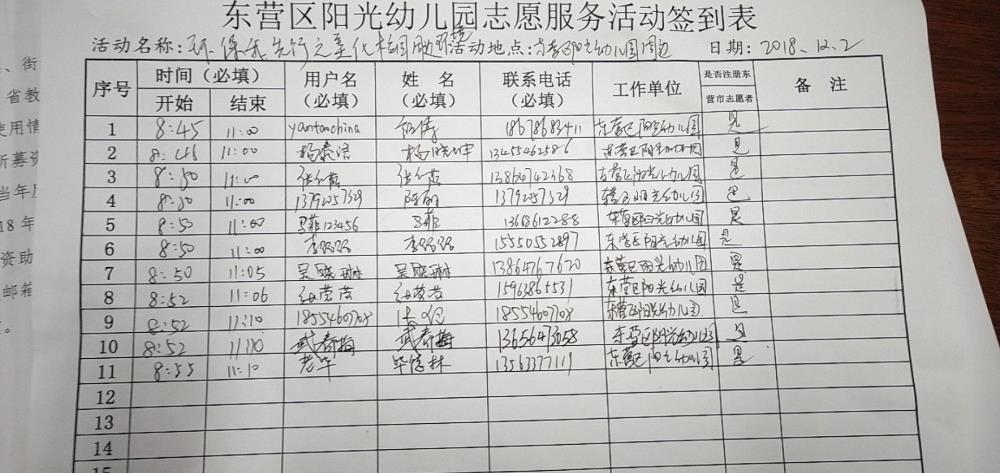 东营区阳光幼儿园志愿服务活动签到表
活动名称: 环保我先行之美化校园周边环境 活动地点: 东营区阳光幼儿园周边 日期: 2018.12.2
序号 时间(必填) 用户名(必填) 姓名(必填) 联系电话(必填) 工作单位 是否注册东营市志愿者 备注
开始 结束
1 8:45 11:00 yantanchina 18678683411 东营区阳光幼儿园 是
2 8:48 11:00 杨泰语 杨晓坤 13455462586 东营区阳光幼儿园 是
3 8:50 11:00 13864742368 东营区阳光幼儿园 是
4 8:50 11:00 1379257329 1379257329 东营区阳光幼儿园 是
5 8:50 11:00 马菲123456 马菲 1368612288 东营区阳光幼儿园 是
6 8:50 11:00 李弱弱 李弱弱 15550552897 东营区阳光幼儿园 是
7 8:50 11:05 吴晓琳 吴晓琳 13864767620 东营区阳光幼儿园 是
8 8:52 11:06 1596386531 东营区阳光幼儿园 是
9 8:52 11:10 18554607708 18554607708 东营区阳光幼儿园 是
10 8:52 11:10 武春梅 武春梅 13656473058 东营区阳光幼儿园 是
11 8:55 11:10 老毕 毕信林 13563377119 东营区阳光幼儿园 是
12
13
14
、街
省教
使用情
所募资
当年
18年
资助
邮箱